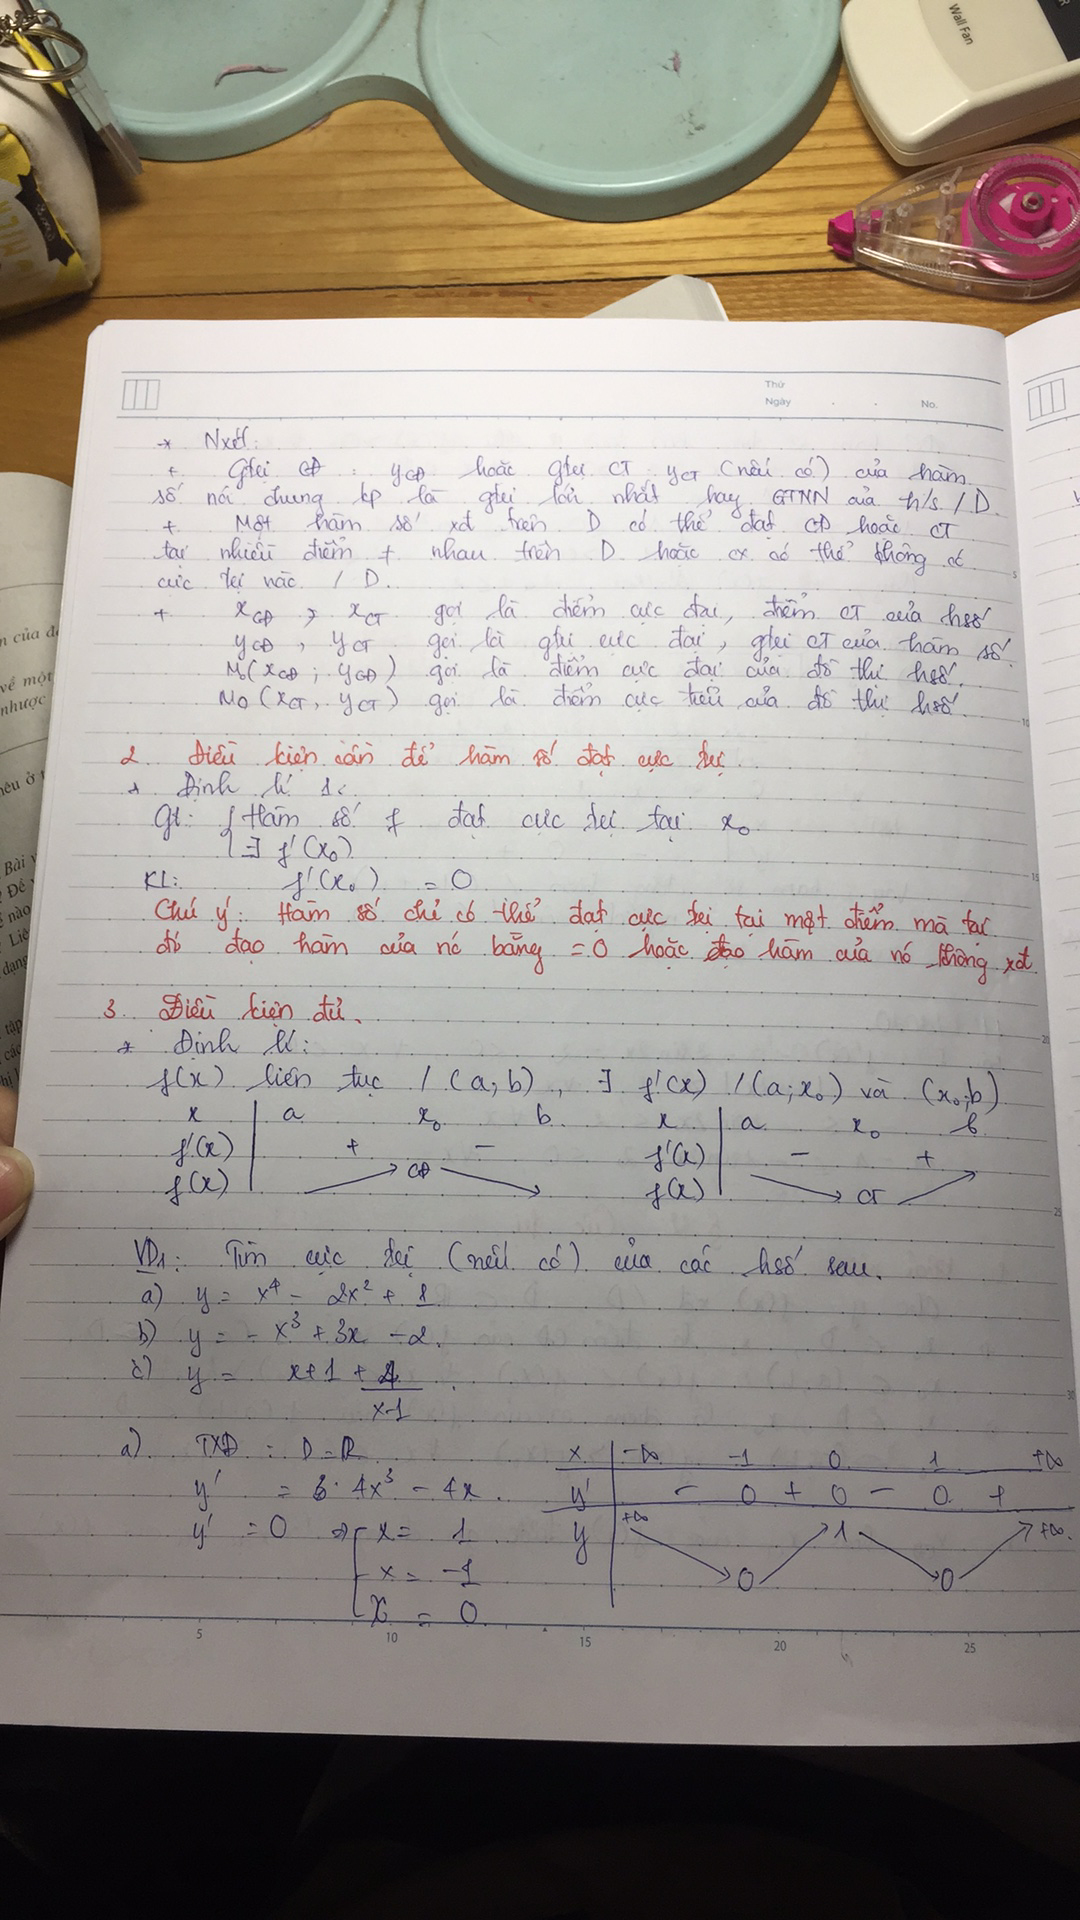 Wall Fan
Thứ
Ngày . . No.
* Nxét:
+ Gtrị CĐ : yCĐ hoặc gtrị CT : yCT (nếu có) của hàm
số nói chung kp là gtrị lớn nhất hay GTNN của h/s / D.
+ Một hàm số xđ trên D có thể đạt CĐ hoặc CT
tại nhiều điểm ≠ nhau trên D hoặc cx có thể không có
cực trị nào / D.
+ xCĐ, xCT gọi là điểm cực đại, điểm CT của hsố
yCĐ, yCT gọi là gtrị cực đại, gtrị CT của hàm số.
M(xCĐ; yCĐ) gọi là điểm cực đại của đồ thị hsố.
M0(xCT, yCT) gọi là điểm cực tiểu của đồ thị hsố.
2. Điều kiện cần để hàm số đạt cực trị.
* Định lí 1:
Gt: { Hàm số f đạt cực trị tại x0
∃ f'(x0)
KL: f'(x0) = 0
Chú ý: Hàm số chỉ có thể đạt cực trị tại một điểm mà tại
đó đạo hàm của nó bằng = 0 hoặc đạo hàm của nó không xđ
3. Điều kiện đủ.
* Định lí:
f(x) liên tục / (a; b), ∃ f'(x) /(a; x0) và (x0; b)
x a x0 b x a x0 b
f'(x) + − f'(x) − +
f(x) CĐ f(x) CT
VD1: Tìm cực trị (nếu có) của các hsố sau.
a) y = x⁴ − 2x² + 1
b) y = − x³ + 3x − 2.
c) y = x+1 + 4/(x-1)
a) TXĐ : D = R
y' = 4x³ − 4x.
y' = 0 ⇒ [ x = 1
x = −1
x = 0
x −∞ −1 0 1 +∞
y' − 0 + 0 − 0 +
y +∞ 0 1 0 +∞
5 10 15 20 25